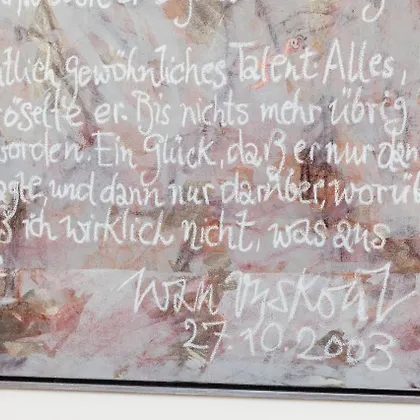 tlich gewöhnliches Talent Alles,
röselte er. Bis nichts mehr übrig
worden. Ein Glück, daß er nur dan
agte und dann nur darüber, worüb
s ich wirklich nicht, was aus
Ivan Vyskočil
27.10.2003